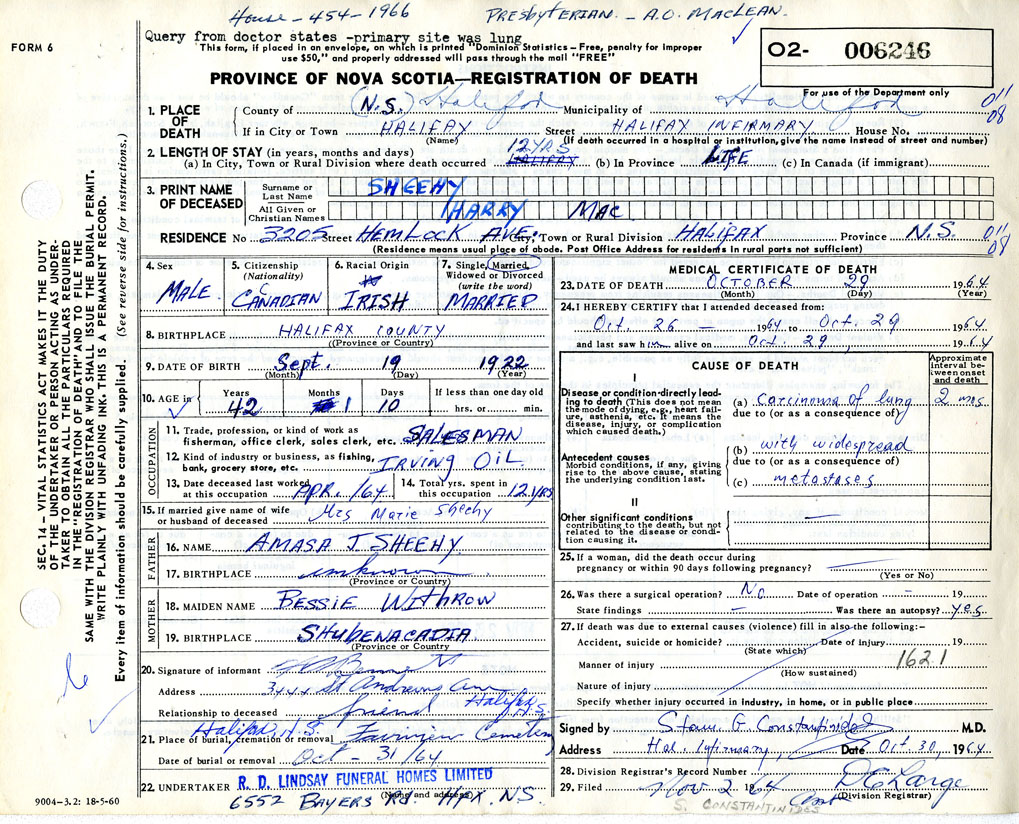 House - 454-1966 PRESBYTERIAN. - A.O. MACLEAN.
FORM 6
Query from doctor states -primary site was lung
This form, if placed in an envelope, on which is printed "Dominion Statistics—Free, penalty for improper
use $50," and properly addressed will pass through the mail "FREE"
O2- 006246
For use of the Department only
PROVINCE OF NOVA SCOTIA—REGISTRATION OF DEATH
011
08
1. PLACE OF DEATH
County of (N.S.) Halifax Municipality of Halifax
If in City or Town HALIFAX Street HALIFAX INFIRMARY House No.
(Name) (If death occurred in a hospital or institution, give the name instead of street and number)
2. LENGTH OF STAY (in years, months and days)
(a) In City, Town or Rural Division where death occurred 12 YRS HALIFAX (b) In Province LIFE (c) In Canada (if immigrant)
3. PRINT NAME OF DECEASED
Surname or Last Name SHEEHY
All Given or Christian Names HARRY MAC
RESIDENCE No 3205 Street HEMLOCK AVE. City, Town or Rural Division HALIFAX Province N.S.
011
08
(Residence means usual place of abode. Post Office Address for residents in rural parts not sufficient)
4. Sex MALE
5. Citizenship (Nationality) CANADIAN
6. Racial Origin IRISH
7. Single, Married, Widowed or Divorced (write the word) MARRIED
8. BIRTHPLACE HALIFAX COUNTY
(Province or Country)
9. DATE OF BIRTH Sept. 19 1922
(Month) (Day) (Year)
10. AGE in Years 42 Months 1 Days 10 If less than one day old hrs. or min.
OCCUPATION
11. Trade, profession, or kind of work as fisherman, office clerk, sales clerk, etc. SALESMAN
12. Kind of industry or business, as fishing, bank, grocery store, etc. IRVING OIL
13. Date deceased last worked at this occupation APR. /64 14. Total yrs. spent in this occupation 12 YRS
15. If married give name of wife or husband of deceased Mrs Marie Sheehy
FATHER
16. NAME AMASA J. SHEEHY
17. BIRTHPLACE unknown
(Province or Country)
MOTHER
18. MAIDEN NAME BESSIE WITHROW
19. BIRTHPLACE SHUBENACADIA
(Province or Country)
20. Signature of informant
Address St Andrews Ave Halifax N.S.
Relationship to deceased friend
21. Place of burial, cremation or removal Halifax, N.S. Fairview Cemetery
Date of burial or removal Oct - 31/64
22. UNDERTAKER R. D. LINDSAY FUNERAL HOMES LIMITED
(Name and address)
6552 BAYERS RD. HFX. NS.
9004-3.2: 18-5-60
MEDICAL CERTIFICATE OF DEATH
23. DATE OF DEATH OCTOBER 29 1964
(Month) (Day) (Year)
24. I HEREBY CERTIFY that I attended deceased from:
Oct. 26 — 1964 to Oct. 29 1964
and last saw him alive on Oct. 29, 1964
CAUSE OF DEATH
Approximate interval between onset and death
I
Disease or condition directly leading to death (This does not mean the mode of dying, e.g., heart failure, asthenia, etc. It means the disease, injury, or complication which caused death.)
(a) carcinoma of lung 2 mos
due to (or as a consequence of)
Antecedent causes
Morbid conditions, if any, giving rise to the above cause, stating the underlying condition last.
(b) with widespread
due to (or as a consequence of)
(c) metastases
II
Other significant conditions contributing to the death, but not related to the disease or condition causing it. —
25. If a woman, did the death occur during pregnancy or within 90 days following pregnancy?
(Yes or No)
26. Was there a surgical operation? No Date of operation - 19
State findings - Was there an autopsy? yes
27. If death was due to external causes (violence) fill in also the following:-
Accident, suicide or homicide? Date of injury 19
(State which)
Manner of injury 162.1
(How sustained)
Nature of injury
Specify whether injury occurred in industry, in home, or in public place
Signed by Stavr G. Constantinides M.D.
Address Hal. Infirmary, Date Oct 30, 1964
28. Division Registrar's Record Number
29. Filed Nov 2 1964 D E Large
(Division Registrar)
S. CONSTANTINIDES
SEC. 14—VITAL STATISTICS ACT MAKES IT THE DUTY
OF THE UNDERTAKER OR PERSON ACTING AS UNDER-
TAKER TO OBTAIN ALL THE PARTICULARS REQUIRED
IN THE "REGISTRATION OF DEATH" AND TO FILE THE
SAME WITH THE DIVISION REGISTRAR WHO SHALL ISSUE THE BURIAL PERMIT.
WRITE PLAINLY WITH UNFADING INK. THIS IS A PERMANENT RECORD.
Every item of information should be carefully supplied. (See reverse side for instructions.)